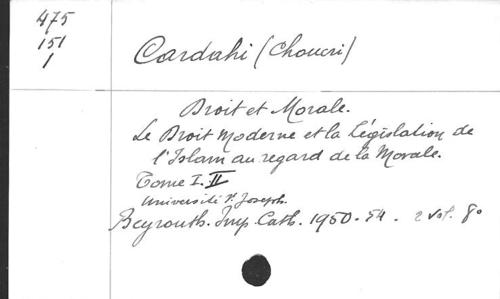 475
151
1
Cardahi (Choucri)
Droit et Morale.
Le Droit Moderne et la Législation de
l'Islam au regard de la Morale.
Tome I. II
Université St Joseph.
Beyrouth. Imp. Cath. 1950-54. 2 vol. 8°